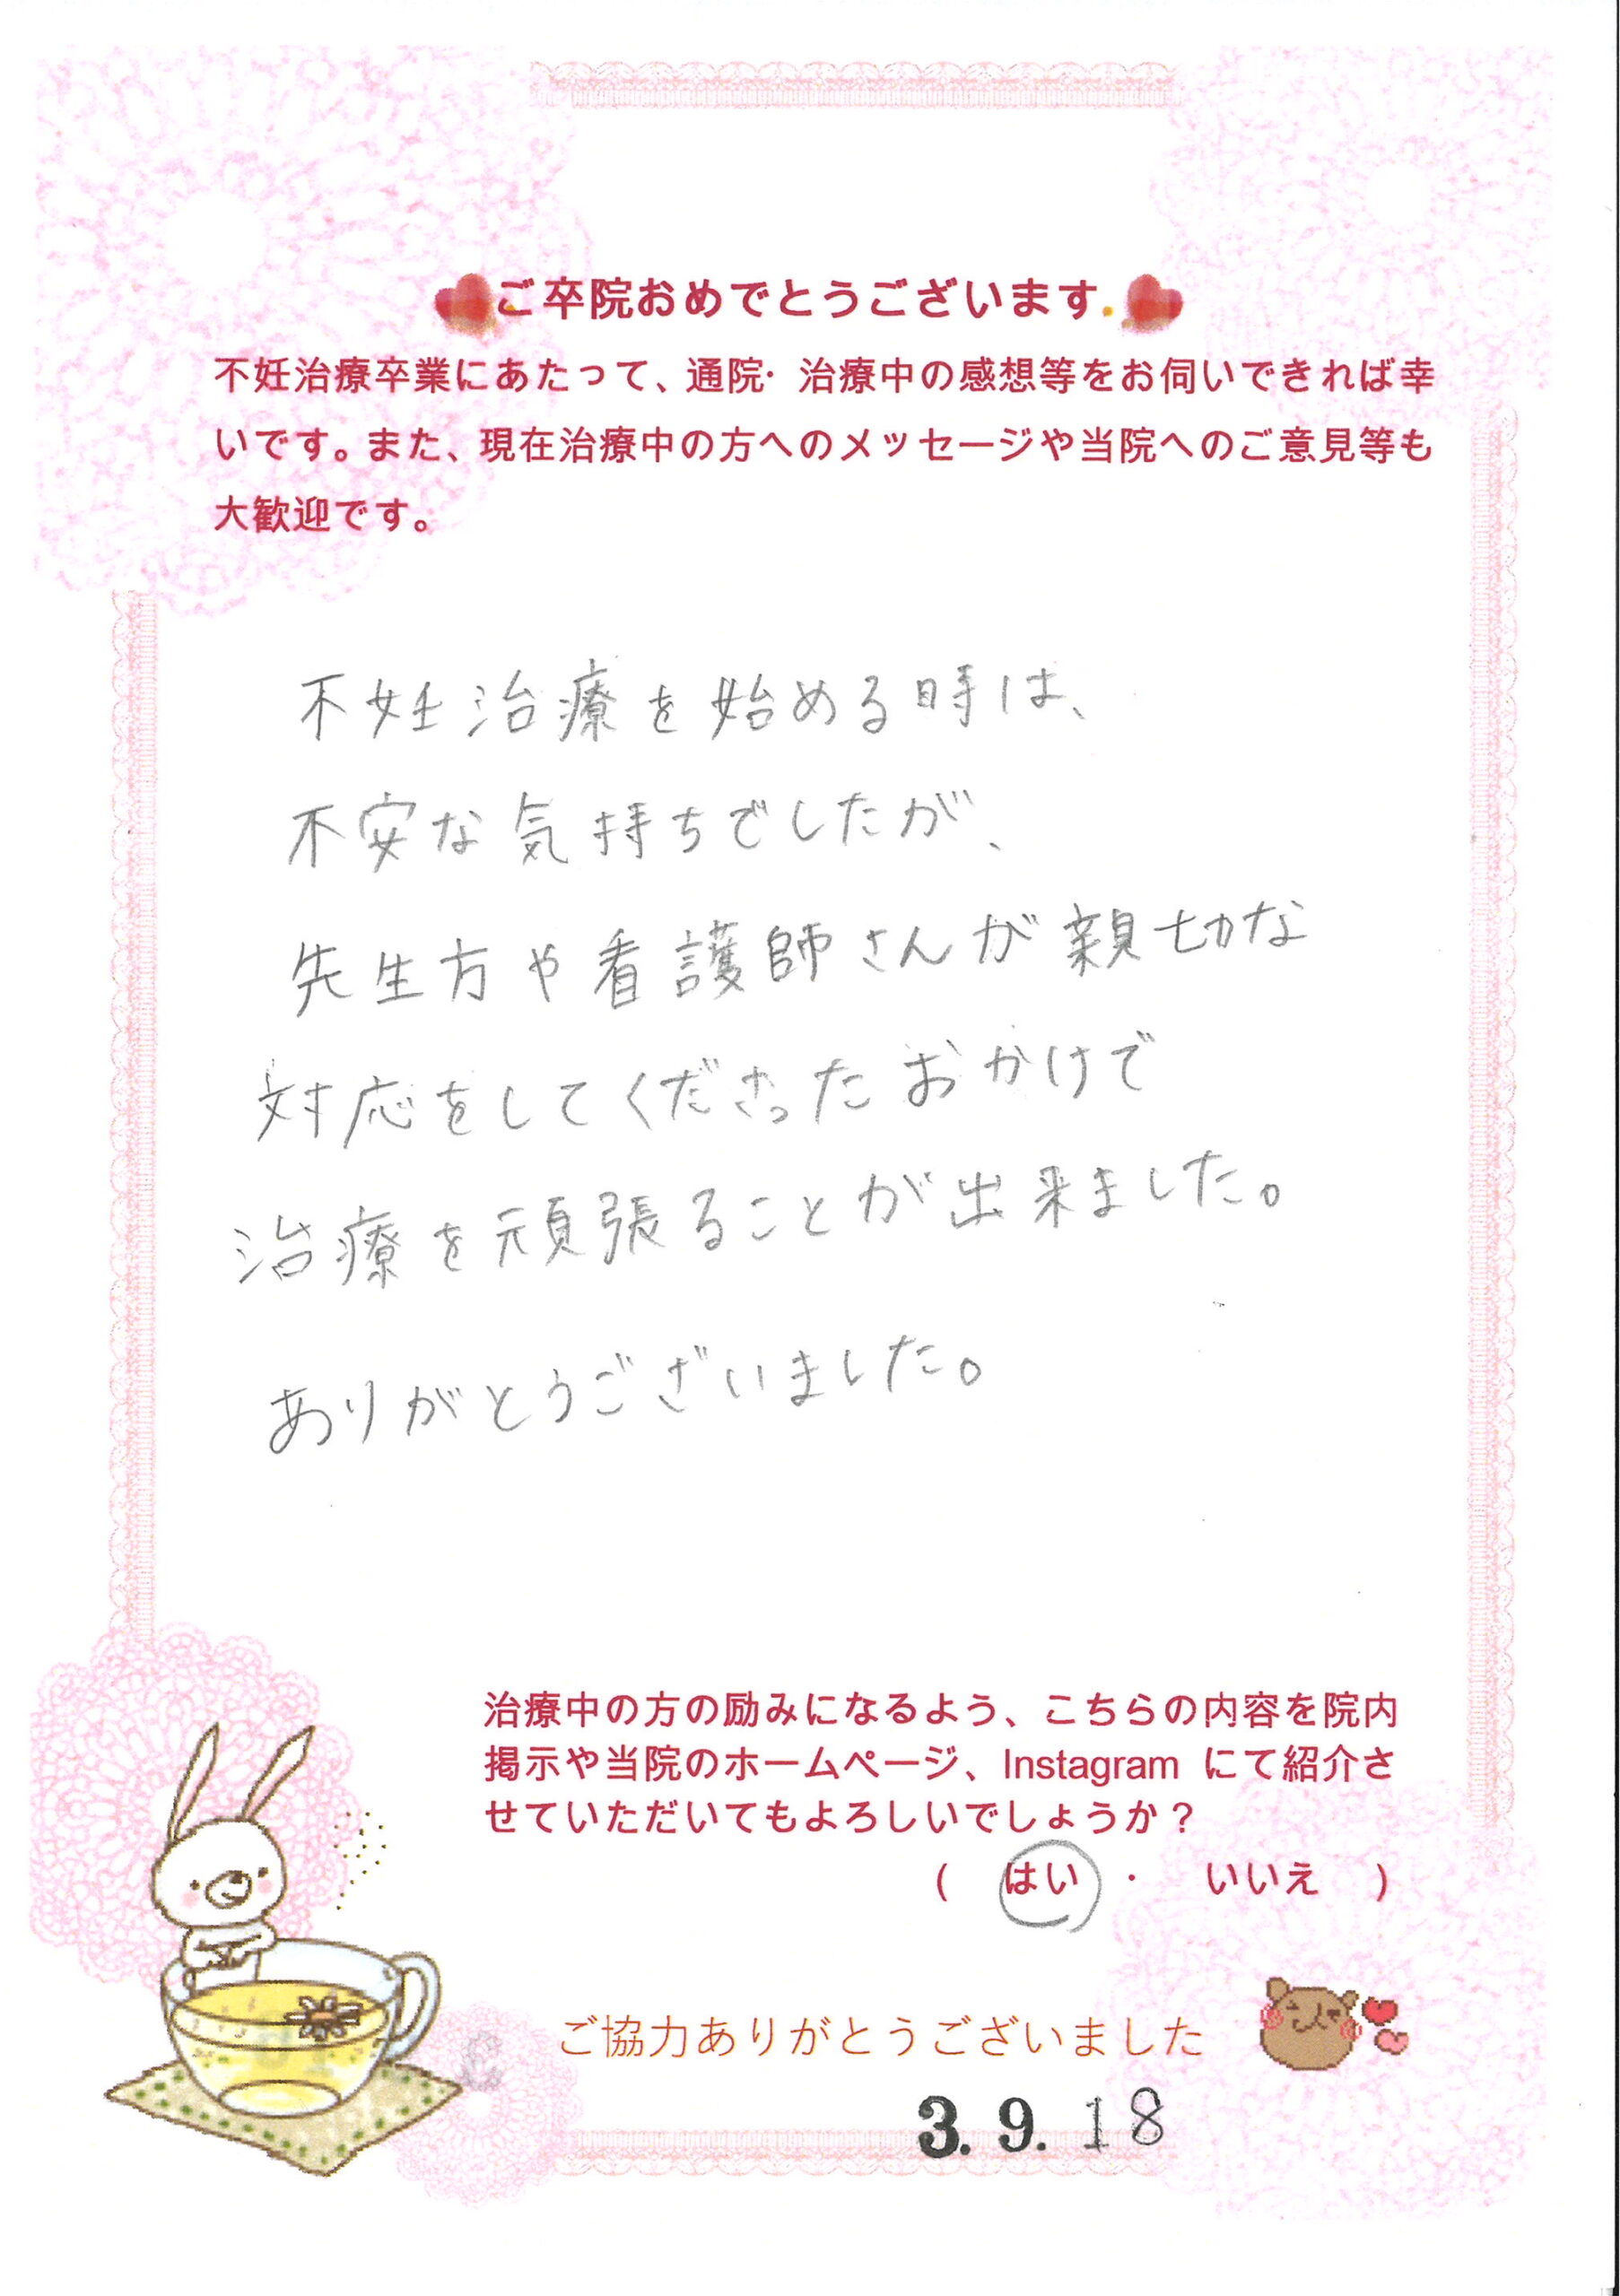 ご卒院おめでとうございます.
不妊治療卒業にあたって、通院・治療中の感想等をお伺いできれば幸
いです。また、現在治療中の方へのメッセージや当院へのご意見等も
大歓迎です。
不妊治療を始める時は、
不安な気持ちでしたが、
先生方や看護師さんが親切な
対応をしてくださったおかけで
治療を頑張ることが出来ました。
ありがとうございました。
治療中の方の励みになるよう、こちらの内容を院内
掲示や当院のホームページ、Instagram にて紹介さ
せていただいてもよろしいでしょうか？
( はい ・ いいえ )
ご協力ありがとうございました
3. 9. 18